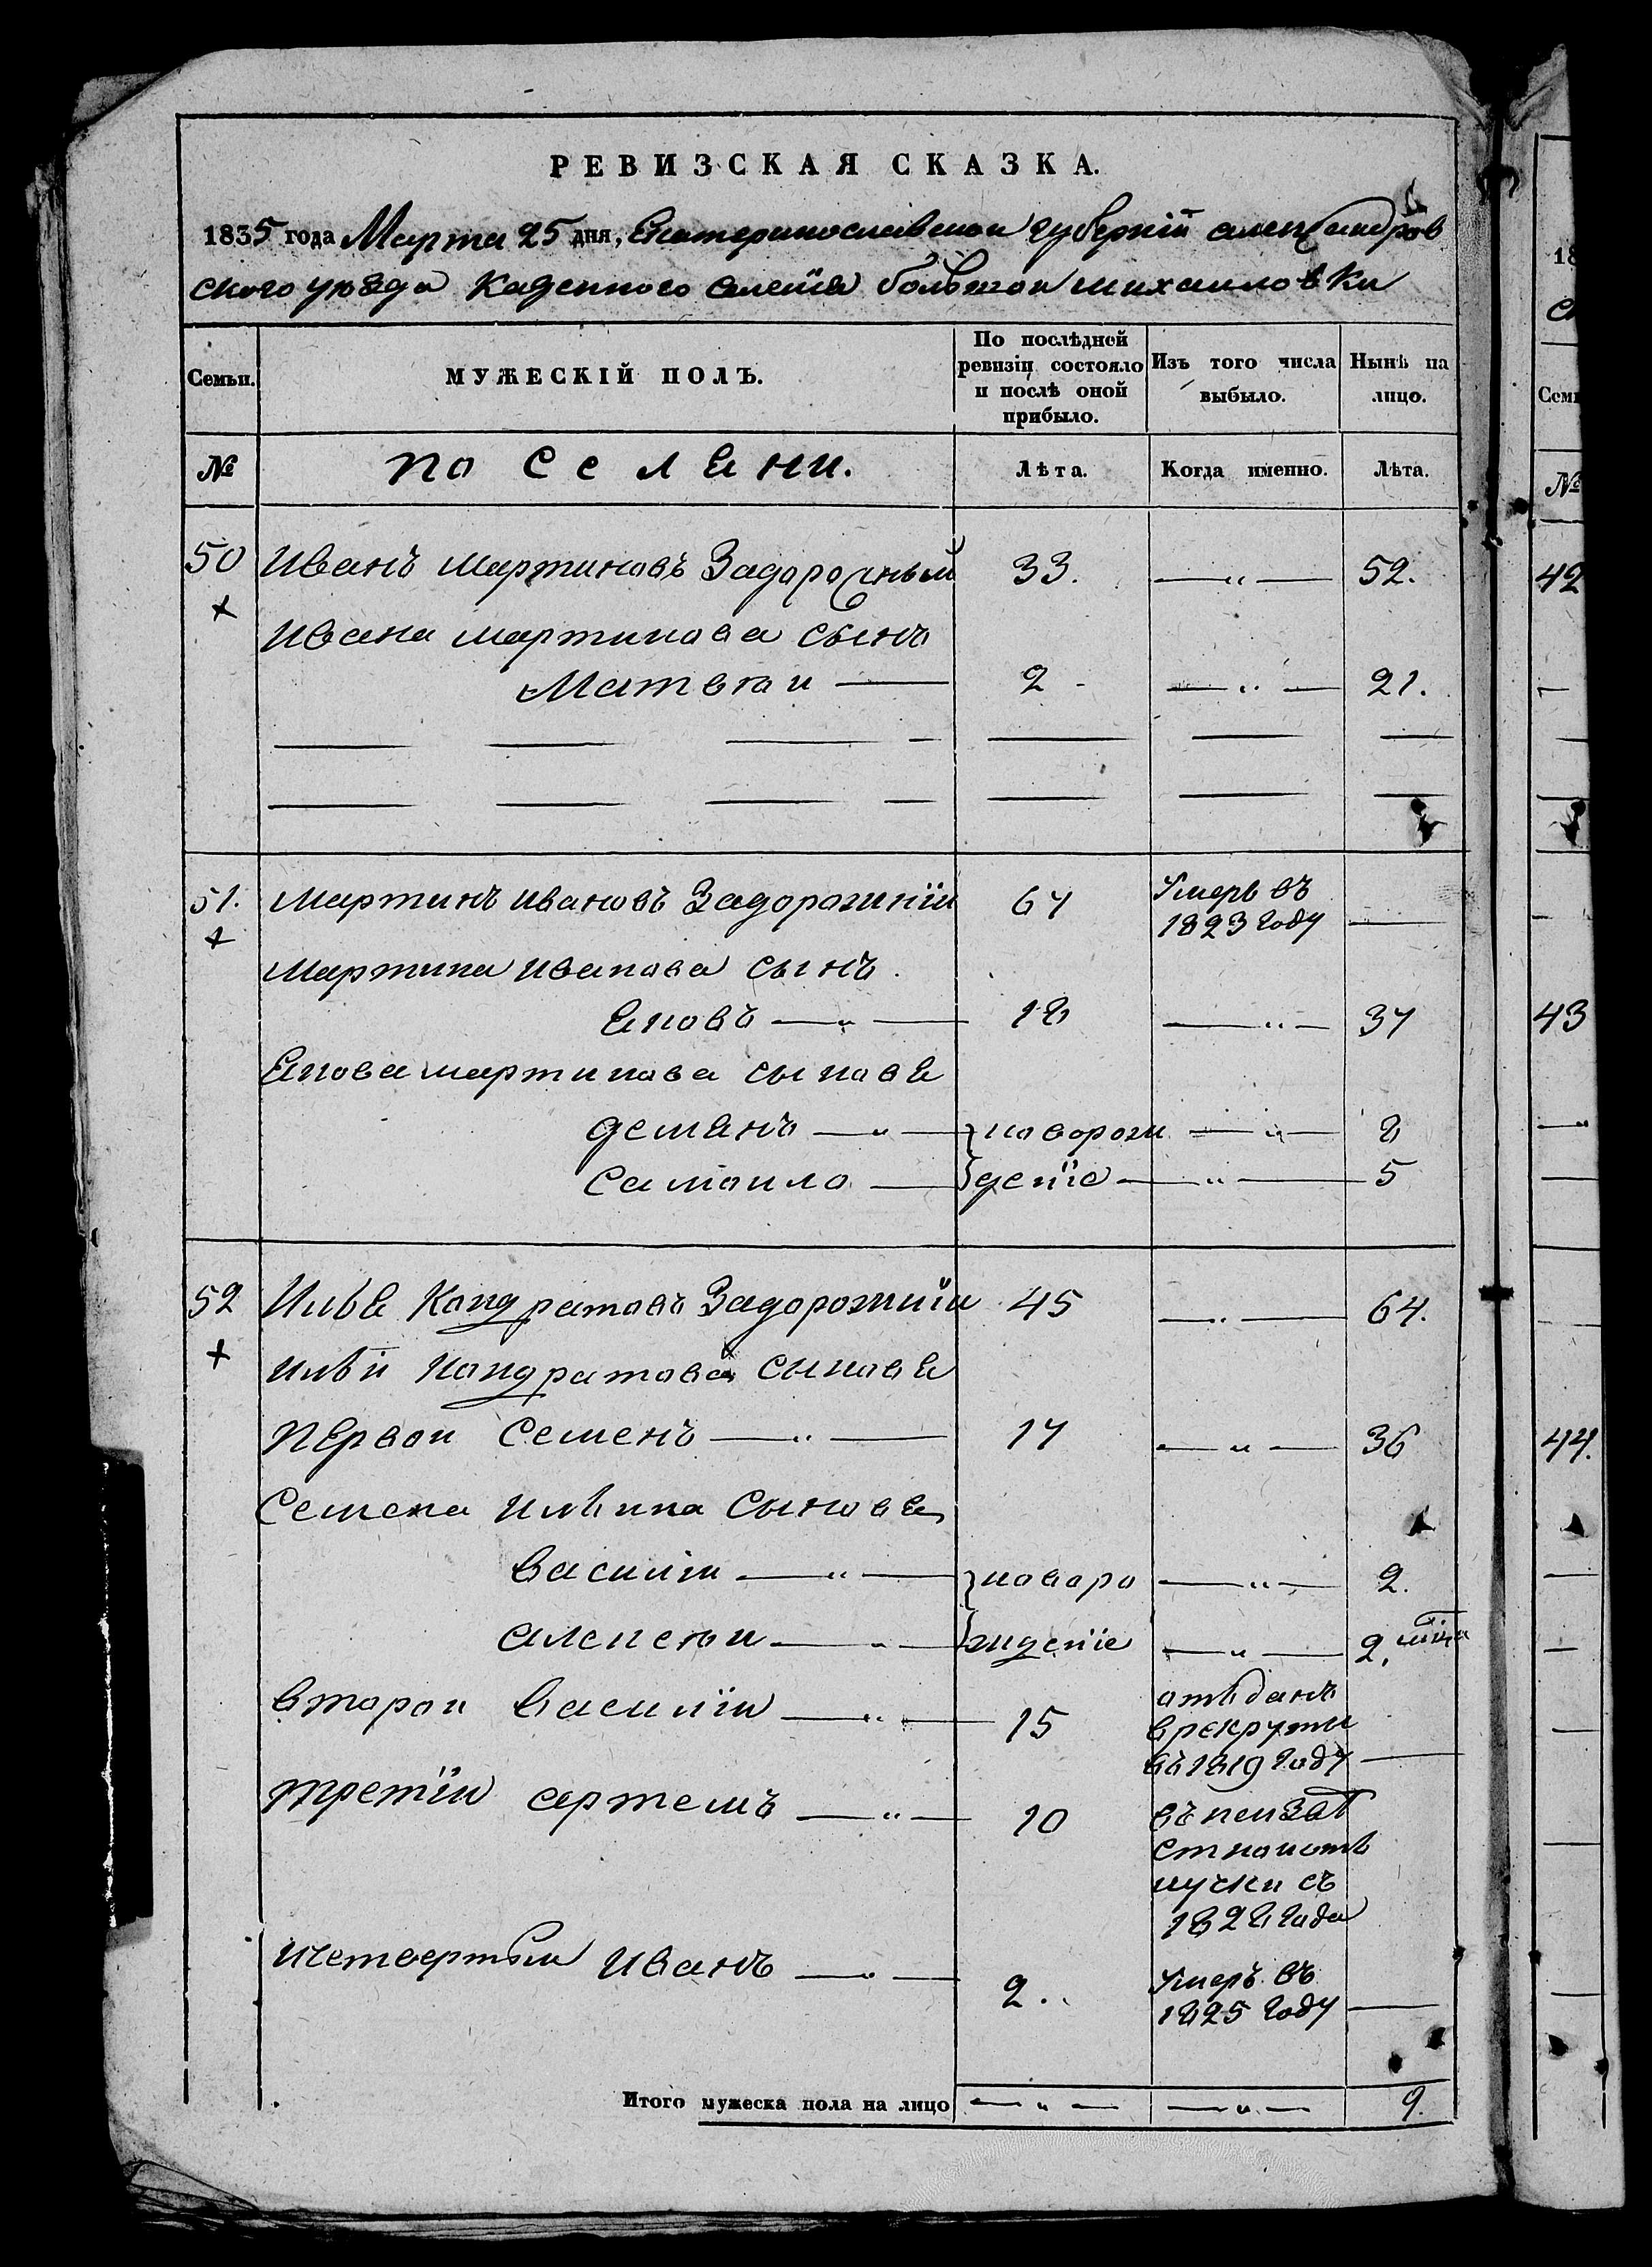 РЕВИЗСКАЯ СКАЗКА.
1835 года Марта 25 дня, Екатеринославской губернїи александров
ского уезда Казенного селенїя большой михаиловки
Семьи. МУЖЕСКІЙ ПОЛЪ. По послѣдней ревизіи состояло и послѣ оной прибыло. Изъ того числа выбыло. Нынѣ на лицо.
№ поселяни. Лѣта. Когда именно. Лѣта.
50 Иванъ Мартиновъ Задорожный 33. — „ — 52.
Ивана мартинова сынъ
Матвѣй — 2 — „ — 21.
51. Мартинъ ивановъ Задорожнїй 64 Умеръ въ
1823 году —
Мартина иванова сынъ
Яковъ — „ — 18 — „ — 37
Якова мартинова синовя
демянъ — „ — } новорож — „ — 8
самоило — } денїе — „ — 5
52 Илья Кондратовъ Задорожнїй 45 — „ — 64.
Ильи Кондратова сыновя
первой Семенъ — „ — 17 — „ — 36
Семена ильина сыновя
василїй — „ — } новоро — „ — 2.
алексѣй — „ — } жденїе — „ — 2. мїца
второй Василїй — „ — 15 отъданъ
врекруты
въ 1819 году —
третїй артемъ — „ — 10
1828 года
ичетвертый Иванъ — „ — 2. Умеръ въ
1825 году —
Итого мужеска пола на лицо — „ — — „ — 9.
18
Семь
№
42
43
44.